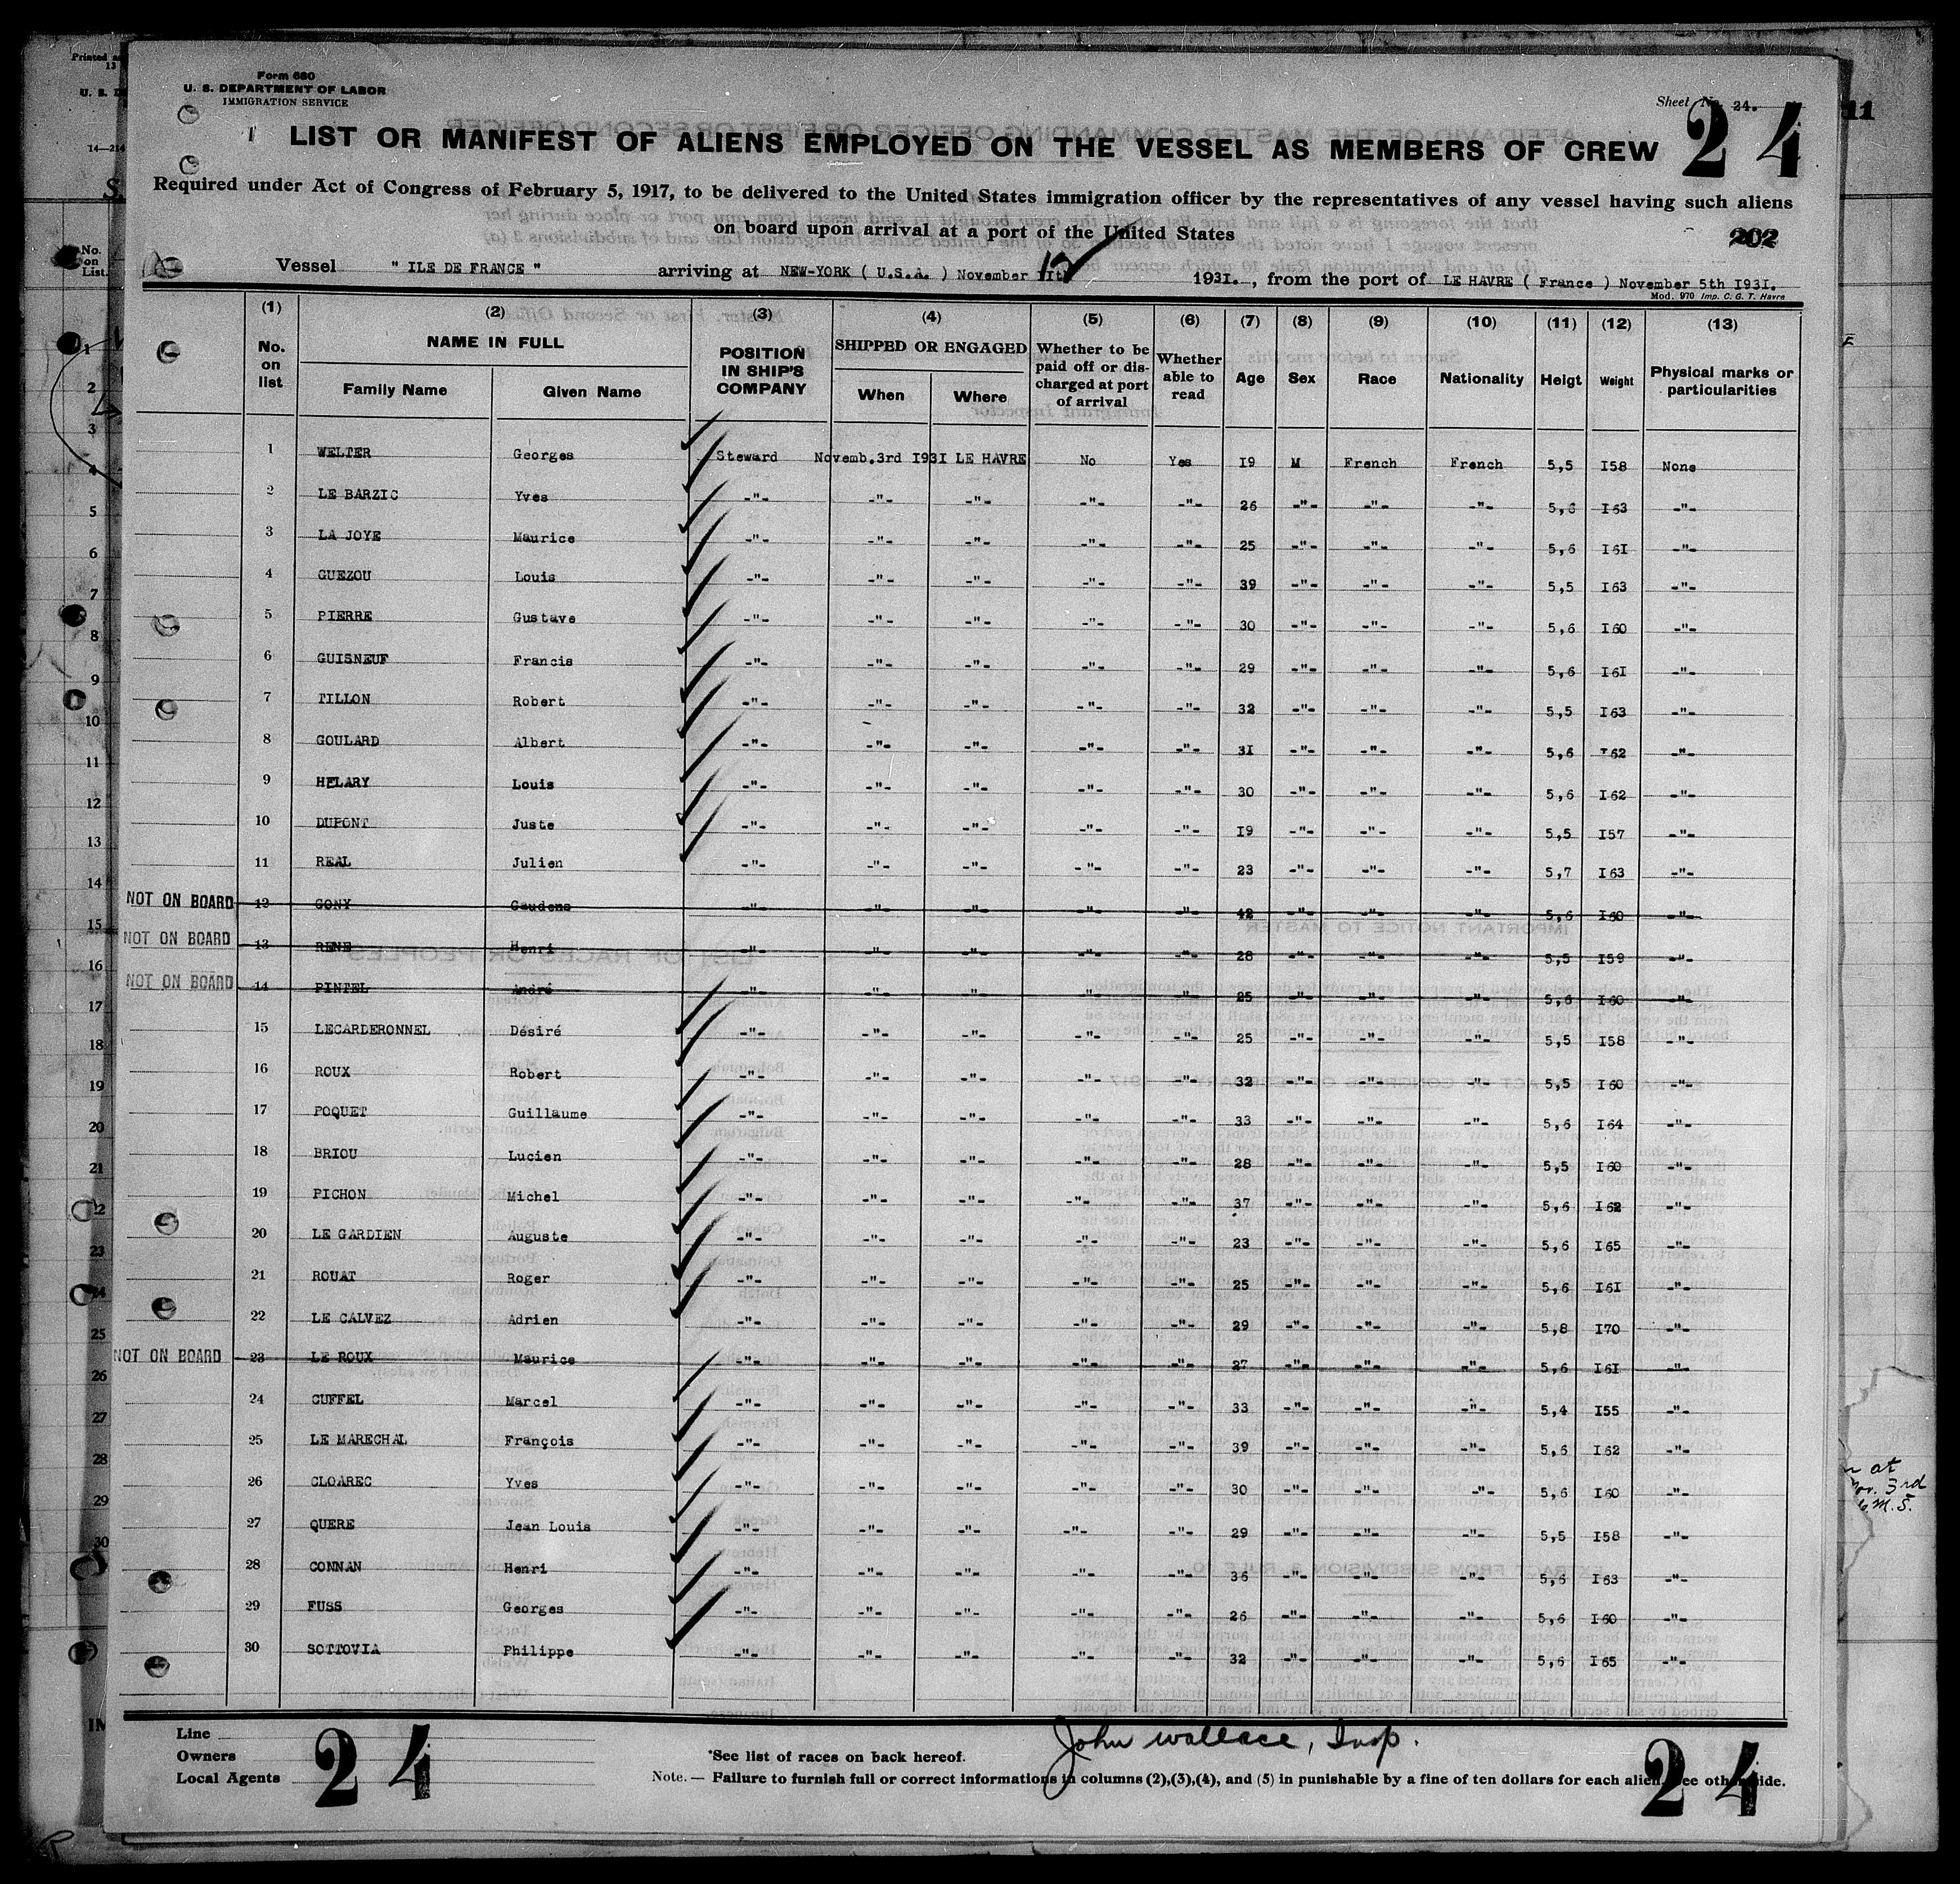 Form 680
U. S. DEPARTMENT OF LABOR
IMMIGRATION SERVICE
Sheet No. 24.
24
LIST OR MANIFEST OF ALIENS EMPLOYED ON THE VESSEL AS MEMBERS OF CREW
Required under Act of Congress of February 5, 1917, to be delivered to the United States immigration officer by the representatives of any vessel having such aliens
on board upon arrival at a port of the United States
202
Vessel " ILE DE FRANCE " arriving at NEW-YORK ( U.S.A. ) November 12 193I. , from the port of LE HAVRE ( France ) November 5th I93I.
Mod. 970 Imp. C. G. T. Havre
(1) (2) (3) (4) (5) (6) (7) (8) (9) (10) (11) (12) (13)
No. on list NAME IN FULL Family Name Given Name POSITION IN SHIP'S COMPANY SHIPPED OR ENGAGED When Where Whether to be paid off or discharged at port of arrival Whether able to read Age Sex Race Nationality Heigt Weight Physical marks or particularities
1 WELTER Georges Steward Novemb.3rd I93I LE HAVRE No Yes I9 M French French 5,5 I58 None
2 LE BARZIC Yves -"- -"- -"- -"- -"- 26 -"- -"- -"- 5,6 I63 -"-
3 LA JOYE Maurice -"- -"- -"- -"- -"- 25 -"- -"- -"- 5,6 I6I -"-
4 GUEZOU Louis -"- -"- -"- -"- -"- 39 -"- -"- -"- 5,5 I63 -"-
5 PIERRE Gustave -"- -"- -"- -"- -"- 30 -"- -"- -"- 5,6 I60 -"-
6 GUISNEUF Francis -"- -"- -"- -"- -"- 29 -"- -"- -"- 5,6 I6I -"-
7 TILLON Robert -"- -"- -"- -"- -"- 32 -"- -"- -"- 5,5 I63 -"-
8 GOULARD Albert -"- -"- -"- -"- -"- 3I -"- -"- -"- 5,6 I62 -"-
9 HELARY Louis -"- -"- -"- -"- -"- 30 -"- -"- -"- 5,6 I62 -"-
10 DUPONT Juste -"- -"- -"- -"- -"- I9 -"- -"- -"- 5,5 I57 -"-
11 REAL Julien -"- -"- -"- -"- -"- 23 -"- -"- -"- 5,7 I63 -"-
NOT ON BOARD 12 GONY Gaudens -"- -"- -"- -"- -"- 42 -"- -"- -"- 5,6 I60 -"-
NOT ON BOARD 13 RENE Henri -"- -"- -"- -"- -"- 28 -"- -"- -"- 5,5 I59 -"-
NOT ON BOARD 14 PINTEL André -"- -"- -"- -"- -"- 25 -"- -"- -"- 5,6 I60 -"-
15 LECARDERONNEL Désiré -"- -"- -"- -"- -"- 25 -"- -"- -"- 5,5 I58 -"-
16 ROUX Robert -"- -"- -"- -"- -"- 32 -"- -"- -"- 5,5 I60 -"-
17 POQUET Guillaume -"- -"- -"- -"- -"- 33 -"- -"- -"- 5,6 I64 -"-
18 BRIOU Lucien -"- -"- -"- -"- -"- 28 -"- -"- -"- 5,5 I60 -"-
19 PICHON Michel -"- -"- -"- -"- -"- 37 -"- -"- -"- 5,6 I62 -"-
20 LE GARDIEN Auguste -"- -"- -"- -"- -"- 23 -"- -"- -"- 5,6 I65 -"-
21 ROUAT Roger -"- -"- -"- -"- -"- 25 -"- -"- -"- 5,6 I6I -"-
22 LE CALVEZ Adrien -"- -"- -"- -"- -"- 29 -"- -"- -"- 5,8 I70 -"-
NOT ON BOARD 23 LE ROUX Maurice -"- -"- -"- -"- -"- 27 -"- -"- -"- 5,6 I6I -"-
24 CUFFEL Marcel -"- -"- -"- -"- -"- 33 -"- -"- -"- 5,4 I55 -"-
25 LE MARECHAL François -"- -"- -"- -"- -"- 39 -"- -"- -"- 5,6 I62 -"-
26 CLOAREC Yves -"- -"- -"- -"- -"- 30 -"- -"- -"- 5,6 I60 -"-
27 QUERE Jean Louis -"- -"- -"- -"- -"- 29 -"- -"- -"- 5,5 I58 -"-
28 CONNAN Henri -"- -"- -"- -"- -"- 36 -"- -"- -"- 5,6 I63 -"-
29 FUSS Georges -"- -"- -"- -"- -"- 26 -"- -"- -"- 5,6 I60 -"-
30 SOTTOVIA Philippe -"- -"- -"- -"- -"- 32 -"- -"- -"- 5,6 I65 -"-
Line
Owners
Local Agents
24
John Wallace, Insp.
*See list of races on back hereof.
Note. — Failure to furnish full or correct informations in columns (2),(3),(4), and (5) in punishable by a fine of ten dollars for each alien. See other side.
24